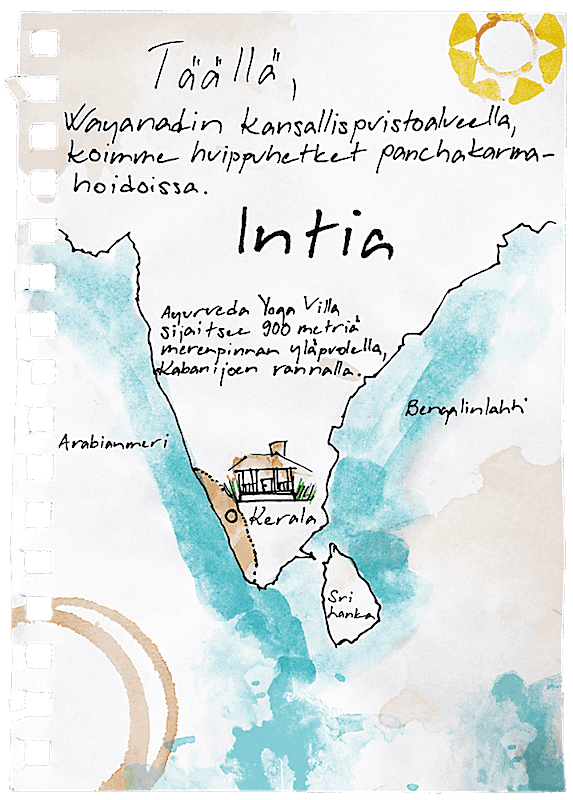 Täällä,
Wayanadin kansallispuistoalueella,
koimme huippuhetket panchakarma-
hoidoissa.
Intia
Ayurveda Yoga Villa
sijaitsee 900 metriä
merenpinnan yläpuolella,
Kabanijoen rannalla.
Bengalinlahti
Arabianmeri
Kerala
Sri
Lanka